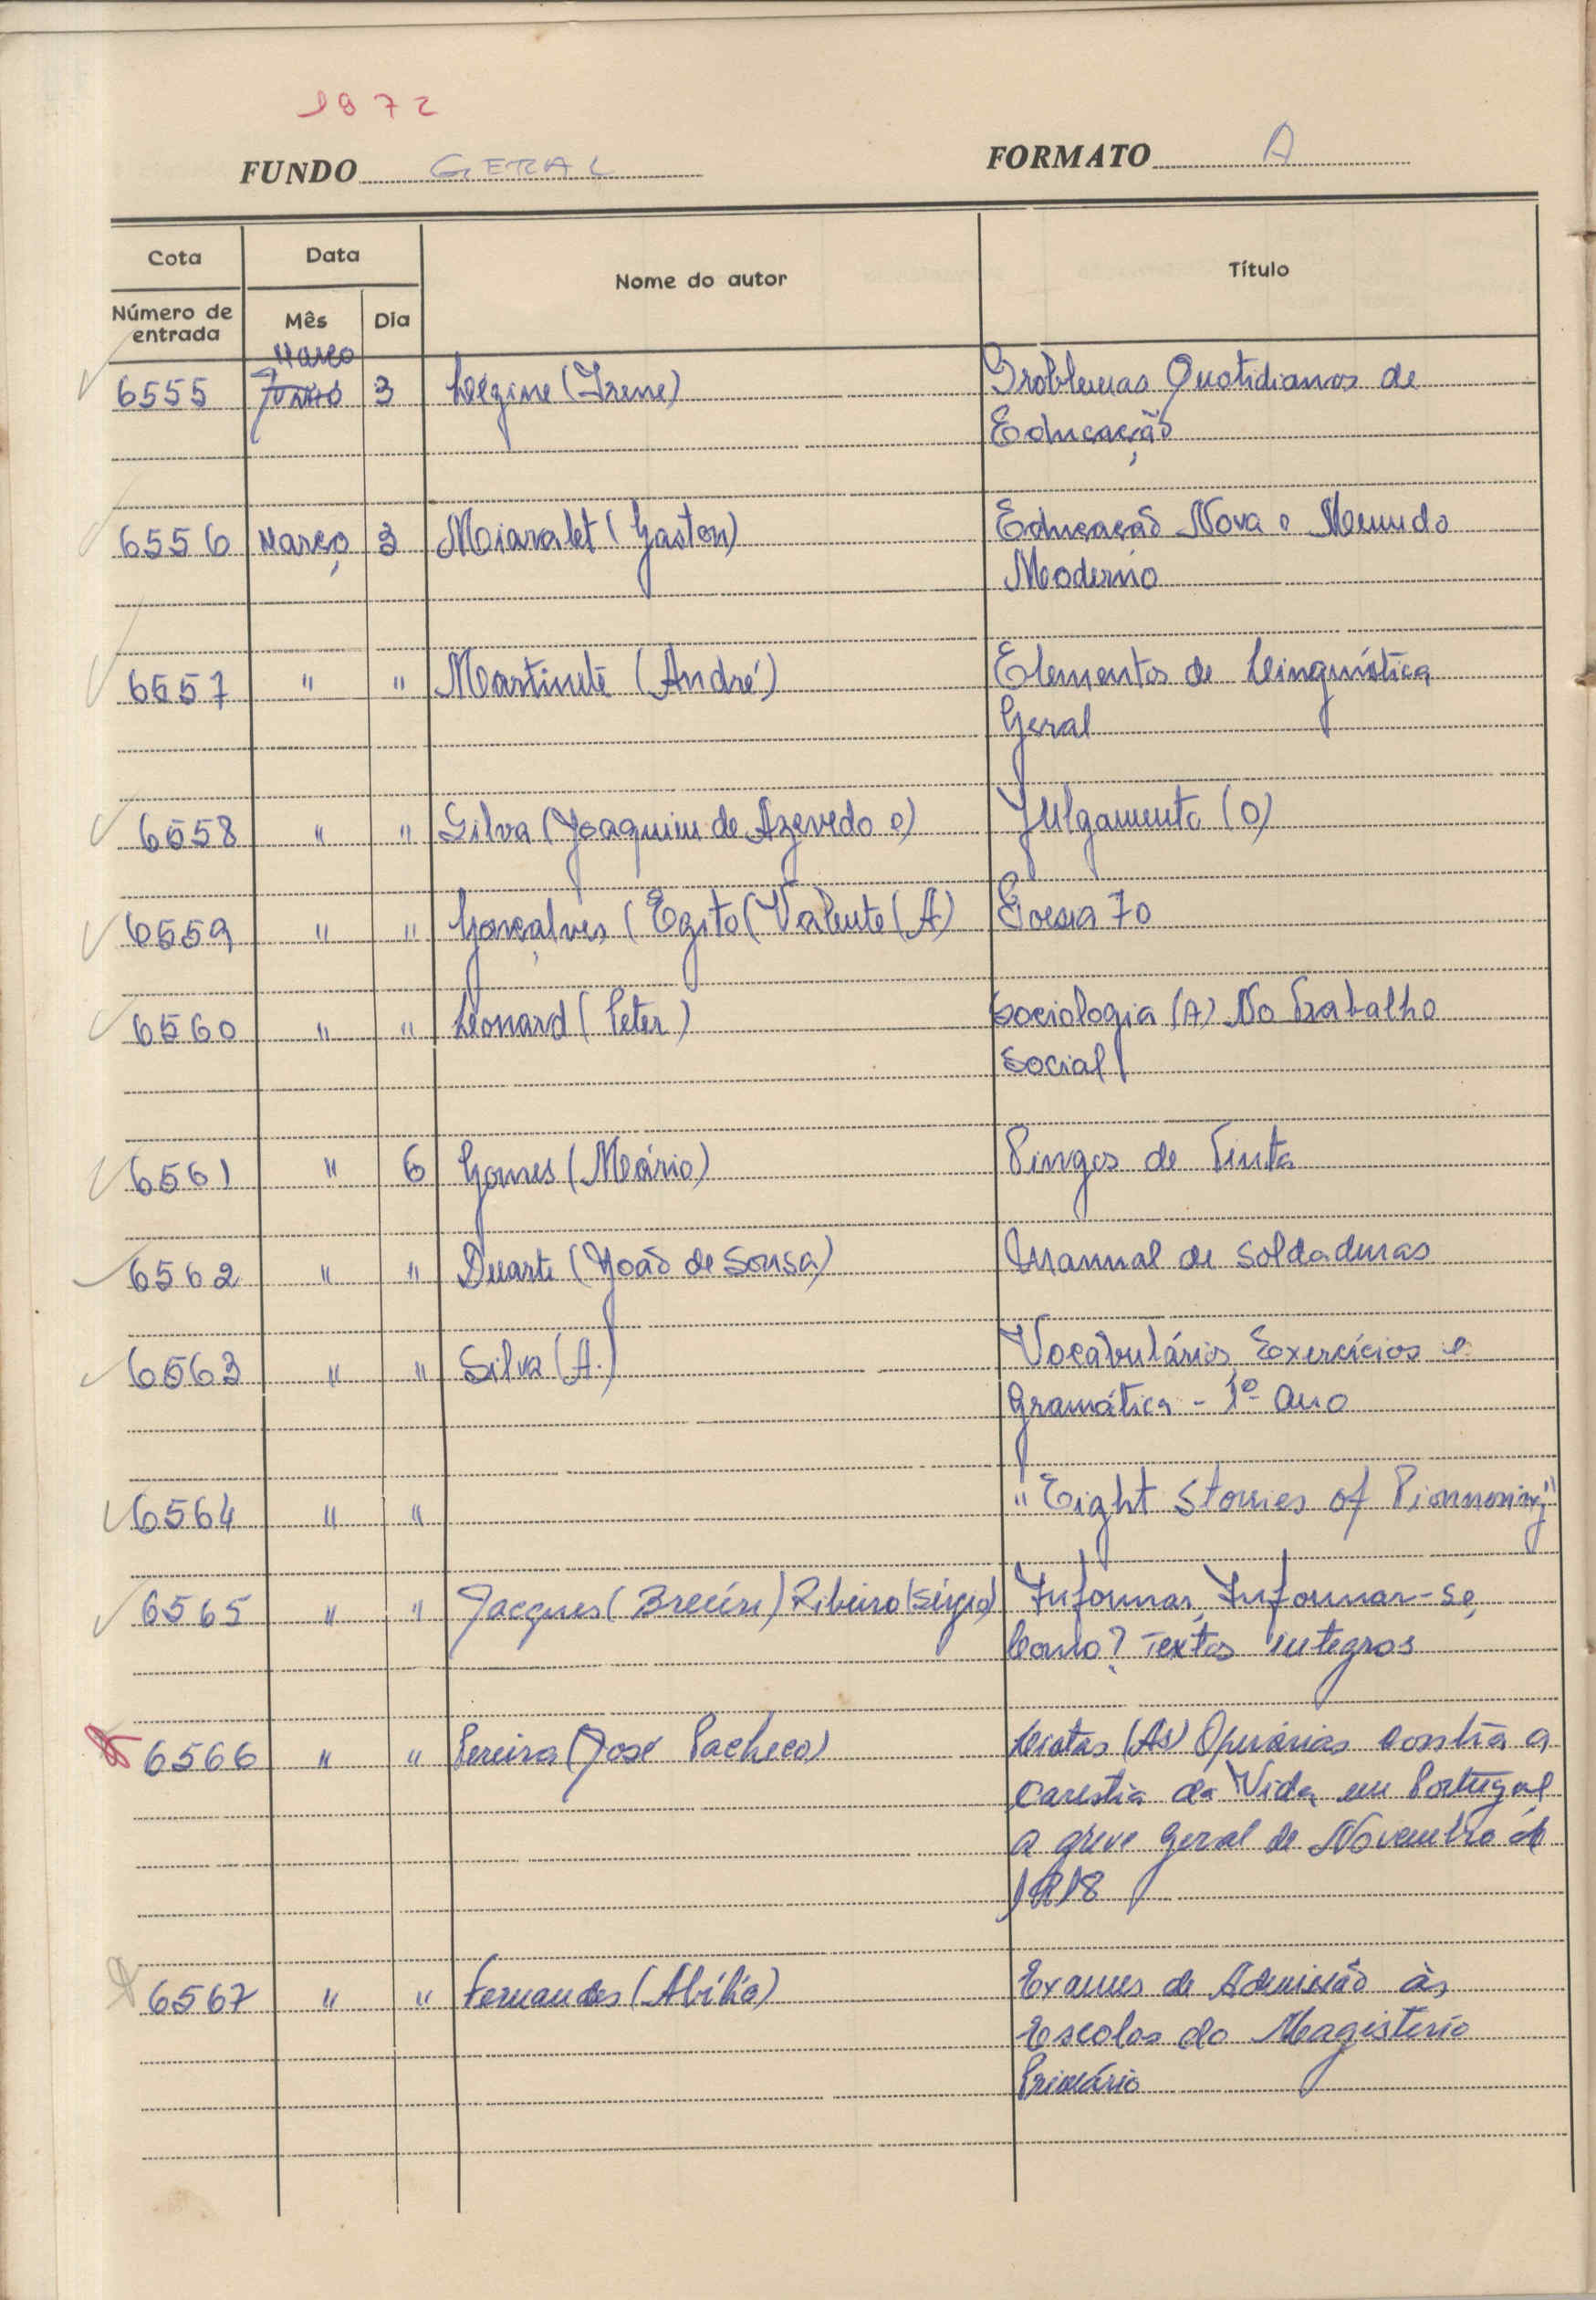 1972
FUNDO GERAL FORMATO A
Cota Data Nome do autor Título
Número de entrada Mês Dia
Março
6555 Junho 3 Lézine (Irene) Problemas Quotidianos de
Educação
6556 Março 3 Miaralet (Gaston) Educação Nova e Mundo
Moderno
6557 " " Martinete (André) Elementos de Linguística
Geral
6558 " " Silva (Joaquim de Azevedo e) Julgamento (O)
6559 " " Gonçalves (Egito (Valente (A) Poesia 70
6560 " " Leonard (Peter) Sociologia (A) No Trabalho
Social
6561 " 6 Gomes (Mário) Pingos de Tinta
6562 " " Duarte (João de Sousa) Manual de Soldaduras
6563 " " Silva (A.) Vocabulários, Exercícios e
Gramática - 1º Ano
6564 " " "Eight Stories of
6565 " " Jacques ( ) Ribeiro (Sérgio) Informar, Informar-se,
Como? Textos integros
6566 " " Pereira (José Pacheco) Lutas (As) Operárias contra a
carestia da Vida em Portugal
a greve geral de Novembro de
1918
6567 " " Fernandes (Abílio) Exames de Admissão às
Escolas do Magistério
Primário